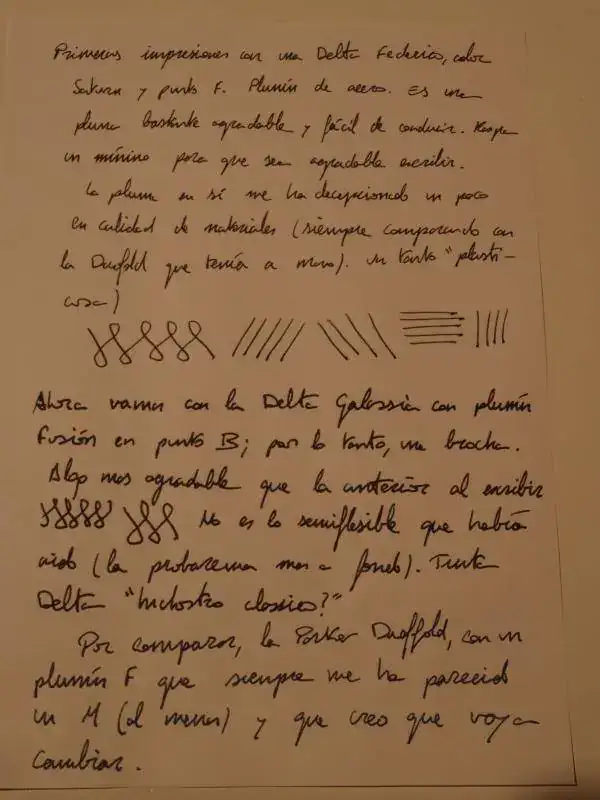 Primeras impresiones con una Delta Federico, color
Saturn y punto F. Plumín de acero. Es una
pluma bastante agradable y fácil de conducir. Raspa
un mínimo para que sea agradable escribir.
La pluma en sí me ha decepcionado un poco
en calidad de materiales (siempre comparando con
la Duofold que tenía a mano). Un tanto "plasti-
cosa)
Ahora vamos con la Delta Galassia con plumín
Fusión en punto B; por lo tanto, una brocha.
Algo mas agradable que la anterior al escribir
No es lo semiflexible que había
oido (la probaremos mas a fondo). Tinta
Delta "Inchostro classico?"
Por comparar, la Parker Duoffold, con un
plumín F que siempre me ha parecido
un M (al menos) y que creo que voy a
cambiar.